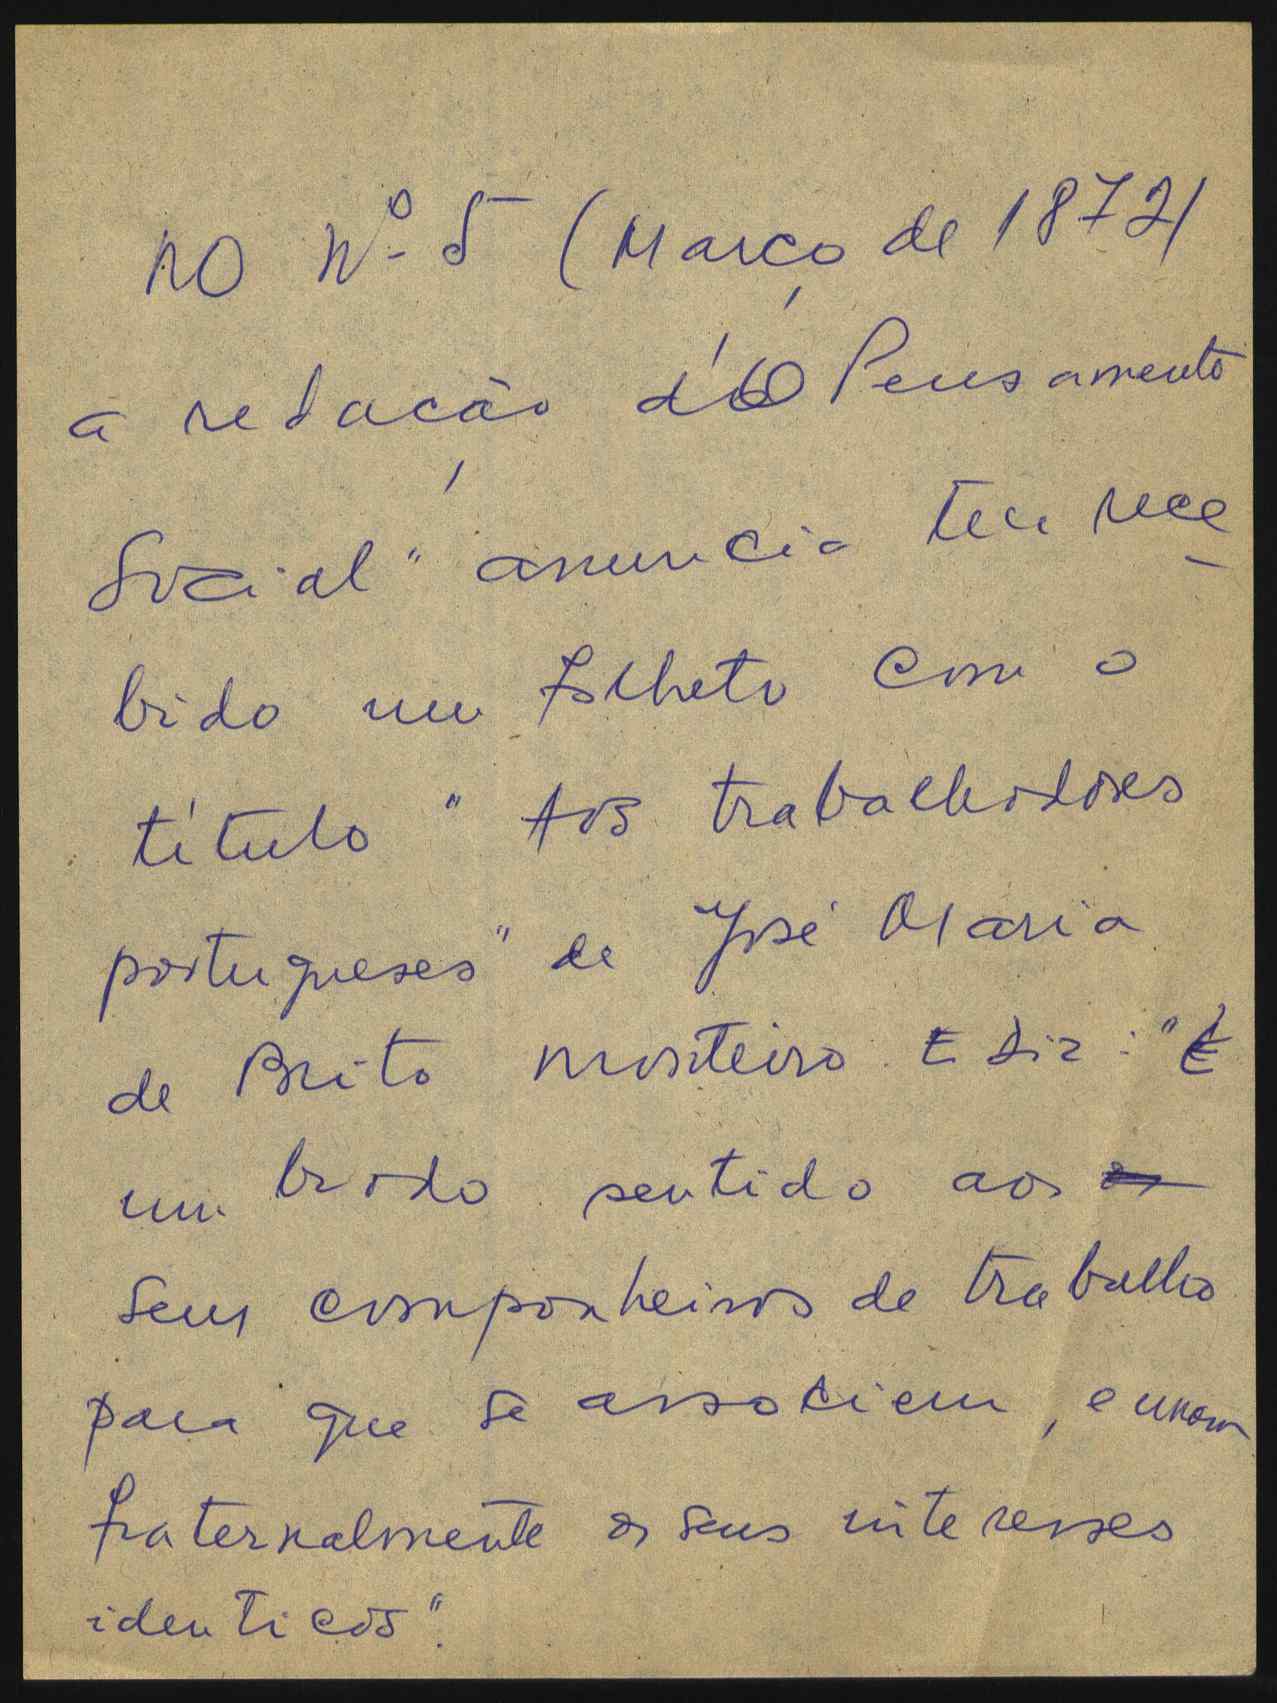 No Nº 5 (Março de 1872)
a redação d'O Pensamento
Social" anuncia ter rece-
bido um folheto com o
título "Aos trabalhadores
portugueses" de José Maria
de Brito Monteiro. E diz: "É
um brado sentido aos
seus companheiros de trabalho
para que se associem, e unam
fraternalmente os seus interesses
identicos".